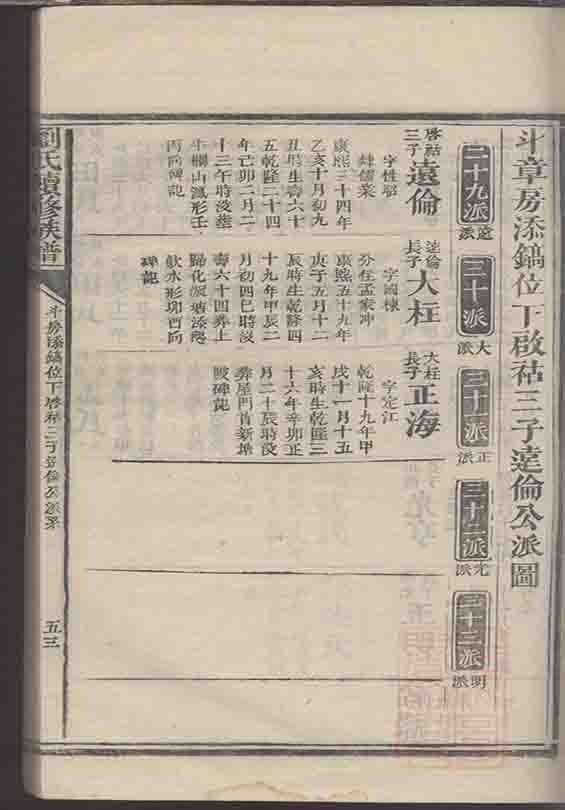 斗章房添鎬位下啟祜三子達倫公派圖
二十九派
達派
三十派
大派
三十一派
正派
三十二派
光派
三十三派
明派
啓祜三子達倫
字性昭
業儒業
康熙三十四年
乙亥十月初九
丑時生壽六十
五乾隆二十四
年己卯二月二
十三午時没葬
牛欄山
丙向碑記
達倫長子大柱
字國棟
分在孟家冲
康熙五十九年
庚子五月十二
辰時生乾隆四
十九年甲辰二
月初四巳時没
壽六十四葬上
歸化
飲水形卯酉向
碑記
大柱長子正海
字定江
乾隆十九年甲
戌十一月十五
亥時生乾隆三
十六年辛卯正
月二十辰時没
葬屋門首新塝
碑記
劉氏續修族譜
斗房添鎬位下啓祜三子達倫公派系
五三